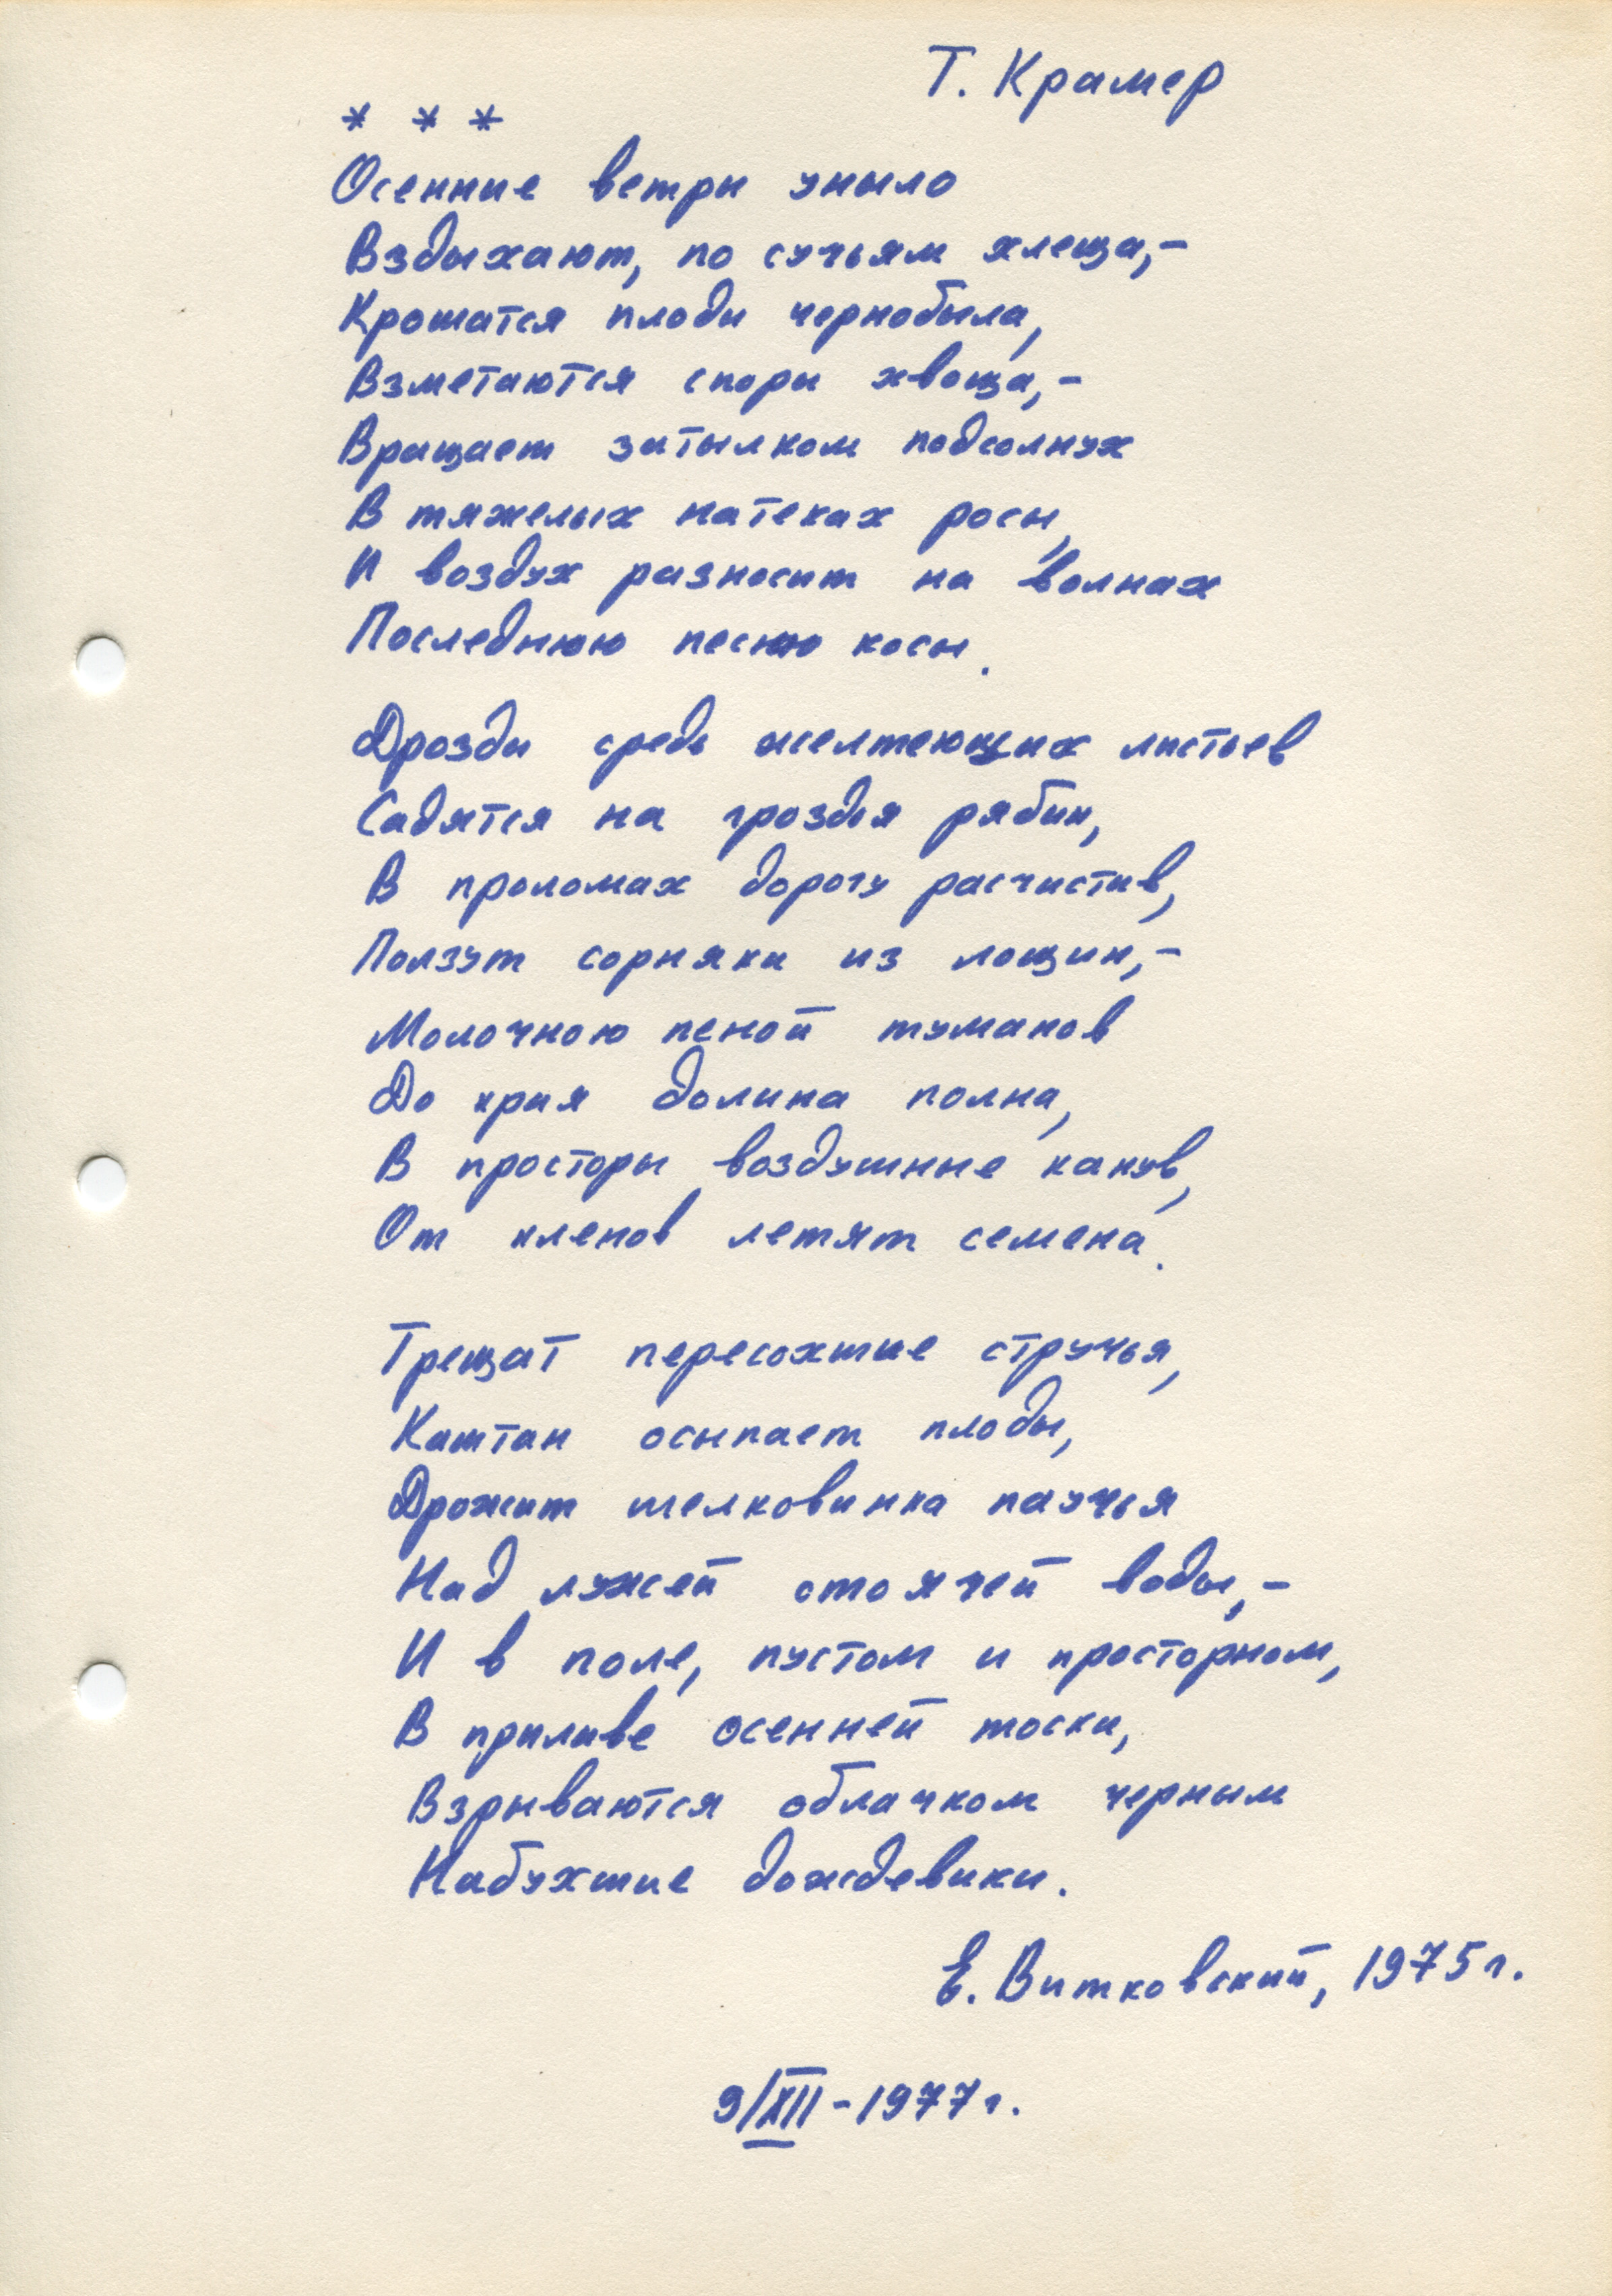 Т. Крамер
* * *
Осенние ветры уныло
Вздыхают, по сучьям хлеща,–
Крошатся плоды чернобыла,
Взметаются споры хвоща,–
Вращает затылком подсолнух
В тяжелых натеках росы,
И воздух разносит на волнах
Последнюю песню косы.
Дрозды средь желтеющих листьев
Садятся на гроздья рябин,
В проломах дорогу расчистив,
Ползут сорняки из лощин,–
Молочною пеной туманов
До края долина полна,
В просторы воздушные канув,
От кленов летят семена.
Трещат пересохшие стручья,
Каштан осыпает плоды,
Дрожит шелковинка паучья
Над лужей стоячей воды,–
И в поле, пустом и просторном,
В приливе осенней тоски,
Взрываются облачком черным
Набухшие дождевики.
Е. Витковский, 1975 г.
9/XII – 1977 г.